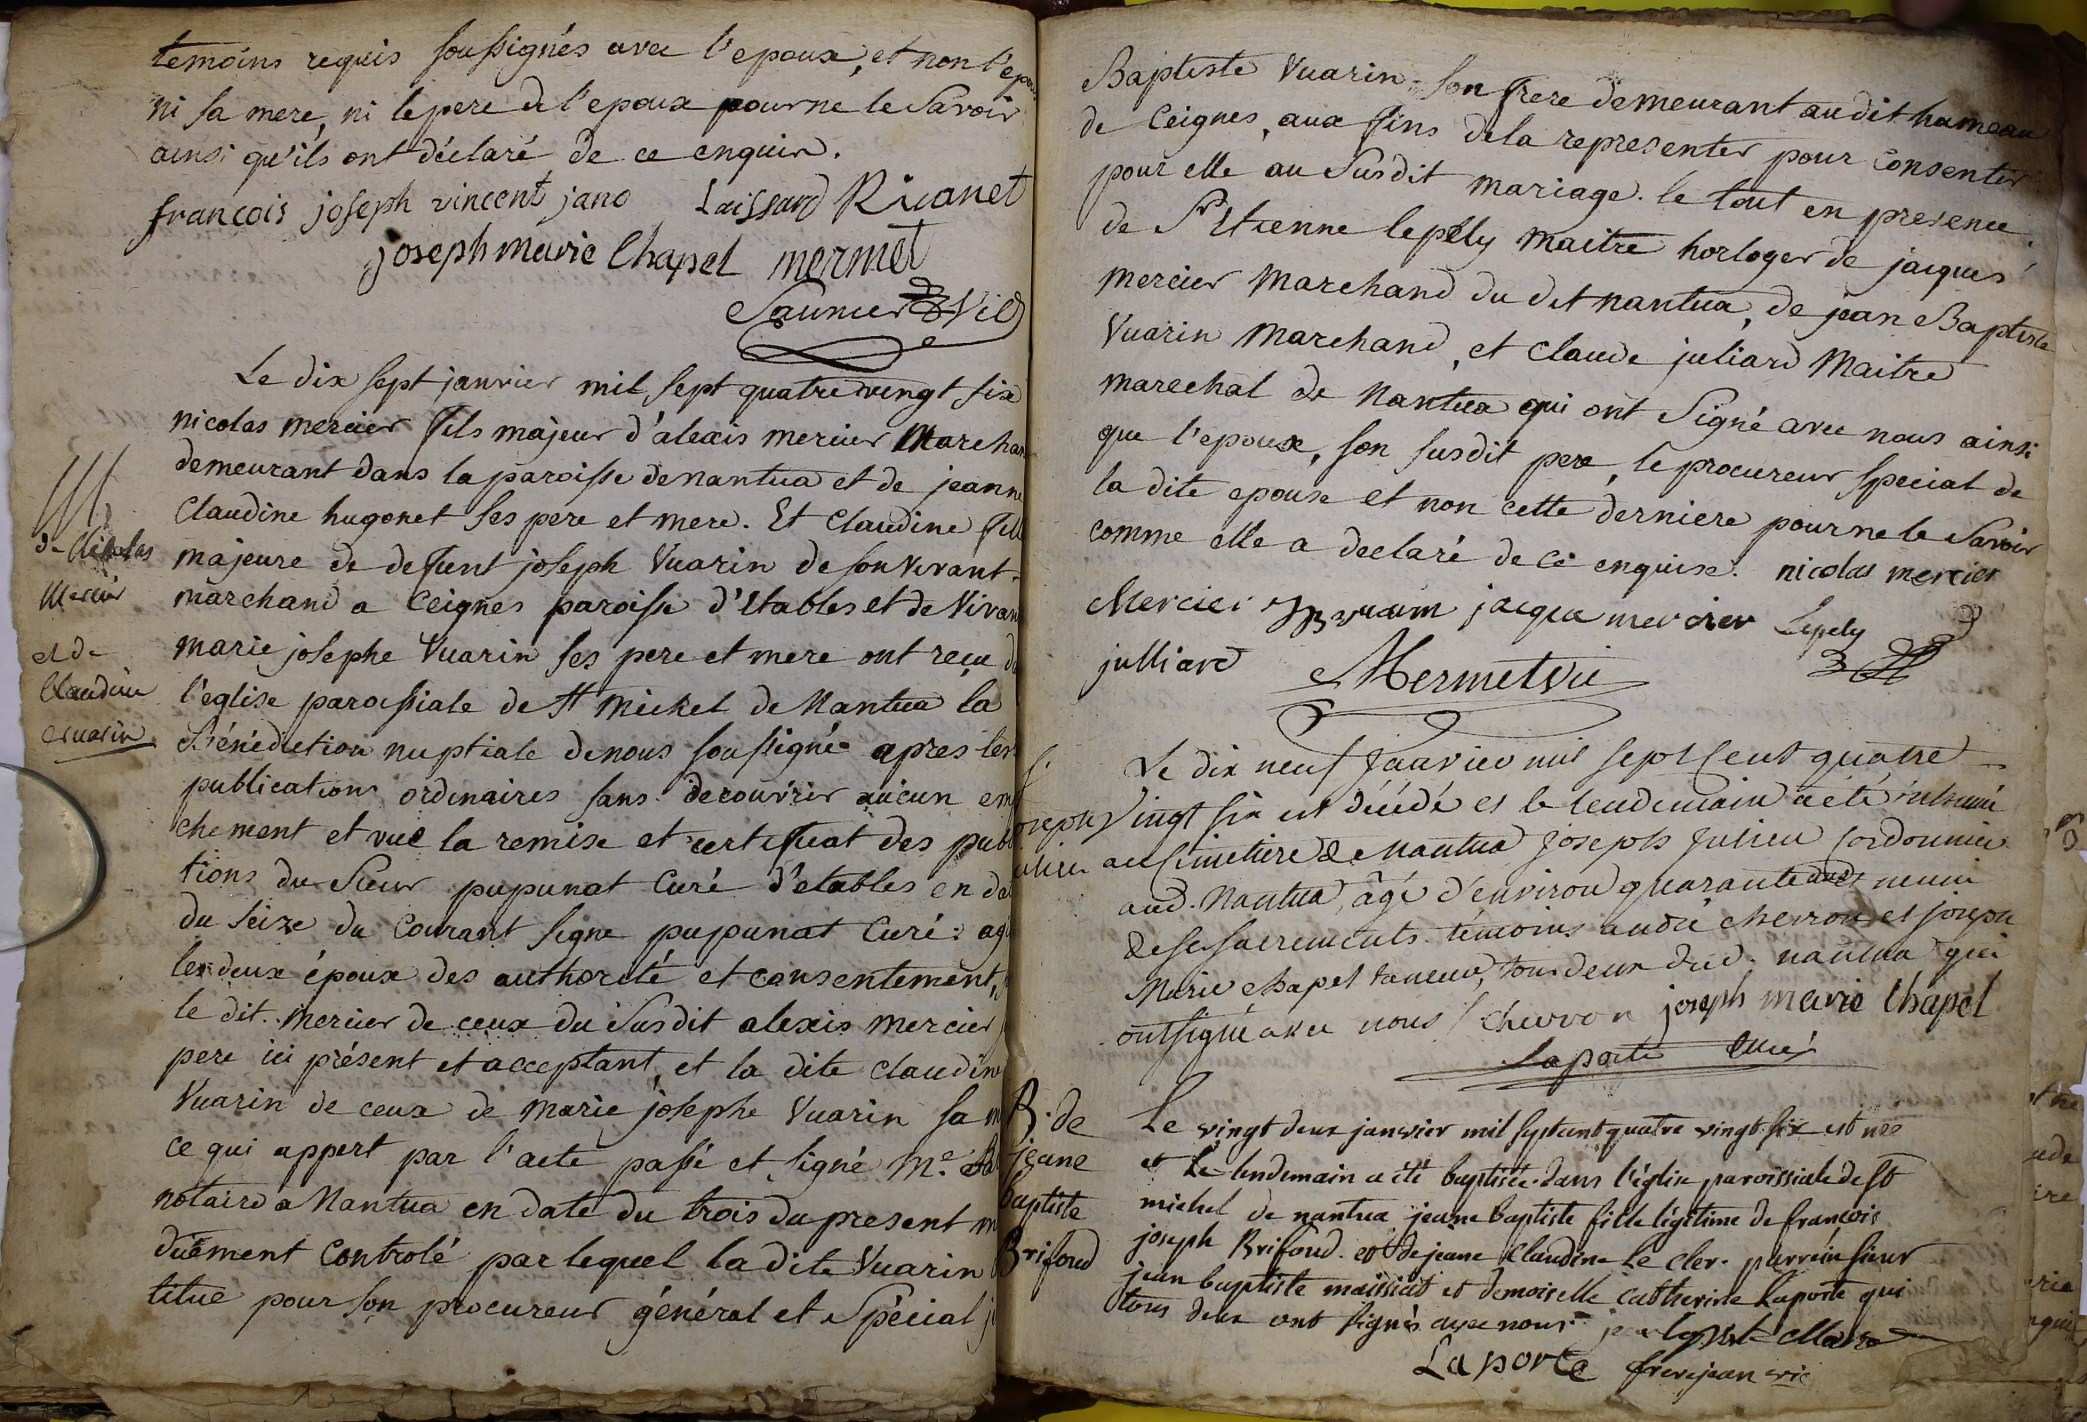 temoins requis soussignés avec l'epoux, et non l'epou
ni sa mere, ni le pere de l'epoux pour ne le Savoir
ainsi qu'ils ont déclaré de ce enquis.
francois joseph vincent jano Laissard Ricanet
joseph marie Chapel mermet
Saunier Vic
Le dix sept janvier mil sept quatre vingt six
nicolas mercier fils majeur d'alexis mercier Marchan
demeurant dans la paroisse de nantua et de jeanne
Claudine hugonet ses pere et mere. Et Claudine fille
de Nicolas
majeure de defunt joseph Vuarin de son vivant
Mercier
marchand a Ceignes paroisse d'Etables et de Vivan
et de
marie josephe Vuarin ses pere et mere ont reçu d
Claudine
l'eglise paroissiale de st michel de Nantua la
vuarin
Bénédiction nuptiale de nous soussigné apres les
publications ordinaires sans decouvrir aucun em
chement et vue la remise et certificat des publ
tions du Sieur pupunat Curé d'etables en da
du seize du Courant signe pupunat Curé: ag
les deux époux des authorité et consentement,
le dit. mercier de ceux du Susdit alexis mercier
pere ici présent et acceptant, et la dite claudine
Vuarin de ceux de marie josephe Vuarin sa m
ce qui appert par l'acte passé et signé Me.
notaire a Nantua en date du trois du present m
duëment Controlé par lequel la dite Vuarin
titué pour son procureur général et Spécial j
Baptiste Vuarin son frere demeurant au dit hameau
de Ceignes, aux fins de la representer pour consentir
pour elle au Susdit mariage. le tout en presence
de Sr Etienne lepely maitre horloger de jacques
mercier Marchand du dit nantua, de jean Baptiste
Vuarin Marchand, et Claude juliard Maitre
marechal de Nantua qui ont Signé avec nous ainsi
que l'epoux, son susdit pere, le procureur special de
la dite epouse et non cette derniere pour ne le Savoir
comme elle a declaré de ce enquise. nicolas mercier
Mercier JB vuarin jacque mercier Lepely
julliard Mermet vic
Le dix neuf Janvier mil sept Cent quatre
Vingt six est décédé et le lendemain a été inhumé
joseph
au Cimetiere de Nantua Joseph Julien Cordonnier
julien
aud. Nantua, âgé d'environ quarante ans muni
de ses sacrements. témoins andré cherron et joseph
Marie chapel taneur, tous deux dud. nantua qui
ont signé avec nous / cherron joseph marie Chapel
Laporte Curé
B. de
jeane
baptiste
Brifoud
Le vingt deux janvier mil sept cent quatre vingt six est née
et Le lendemain a été baptisée dans l'église paroissiale de st
michel de nantua jeane baptiste fille légitime de francois
joseph Brifoud. et de jeane Claudine Le Clerc. parrein sieur
jean baptiste maissiat et demoiselle catherine Laporte qui
tous deux ont signés avec nous.
Laporte frerejean vic